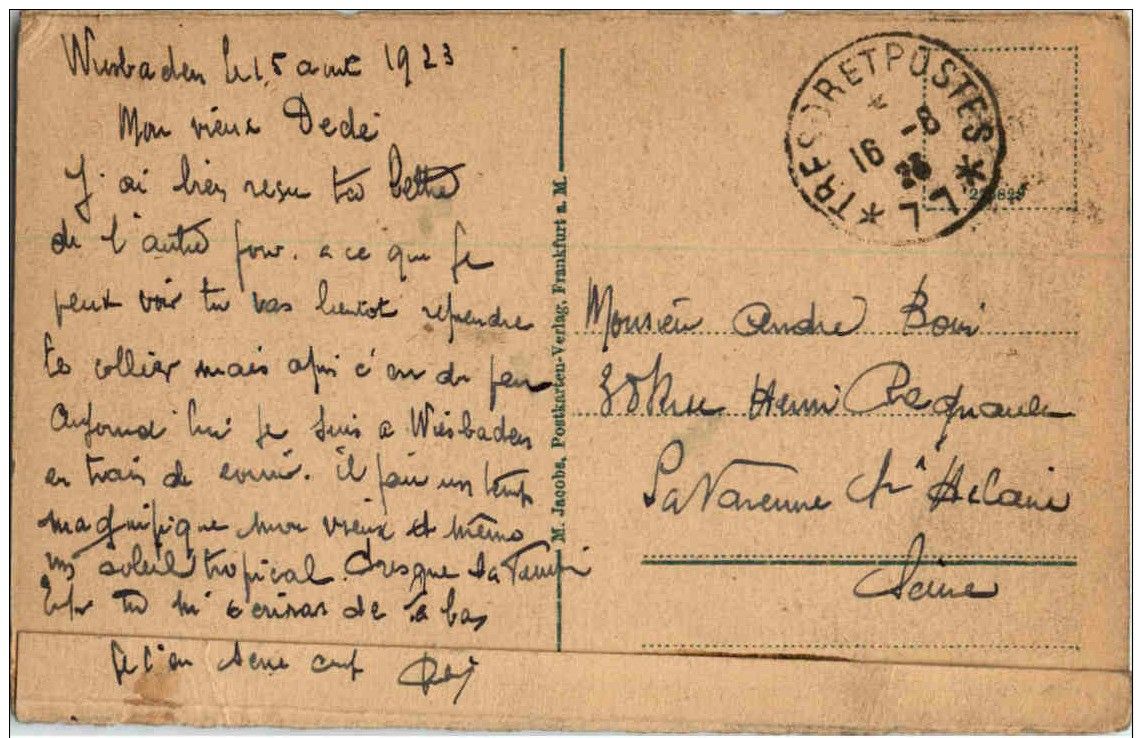 Wiesbaden le 15 aout 1923
Mon vieux Dedé
J'ai bien resu ta lettre
de l'autre jour. a ce que je
peux voir tu vas bientot reprendre
le collier mais apri c'en du peu
Aujourd hui je suis a Wiesbaden
en train de courir. il fait un temp
magnifique mon vieux et meme
un soleil tropical.
tu m'écriras de la bas
Je t'en serre cinq
M. Jacobs, Postkarten-Verlag, Frankfurt a. M.
* TRESOR ET POSTES *
16 -8
Monsieur Andre
Rue Henri Regnault
La Varenne St Hilaire
Seine